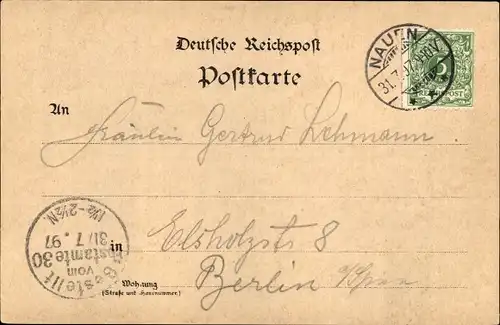 Deutsche Reichspost
Postkarte
NAUEN
31.7.97
An
Fräulein Gertrud Lehmann
in
Elsholzstr 8
Berlin
Wohnung
(Straße und Hausnummer)
Bestellt
vom
Postamte 30
31/7.97
1½-2½N.